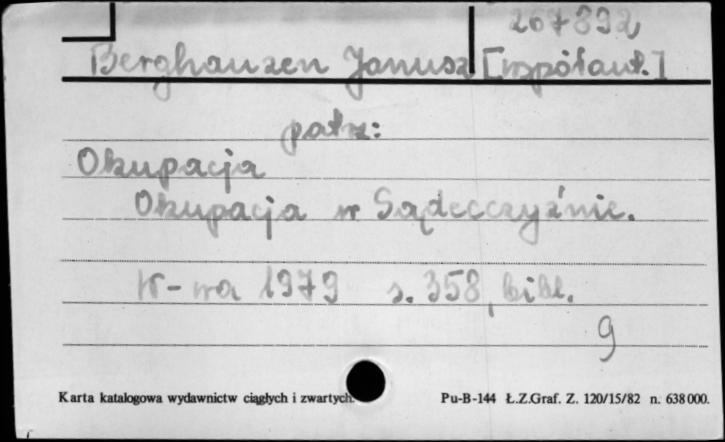 267892
Berghauzen Janusz [współaut.]
patrz:
Okupacja
Okupacja w Sądecczyźnie.
W-wa 1979 s. 358, bibl.
9
Karta katalogowa wydawnictw ciągłych i zwartych. Pu-B-144 Ł.Z.Graf. Z. 120/15/82 n. 638000.